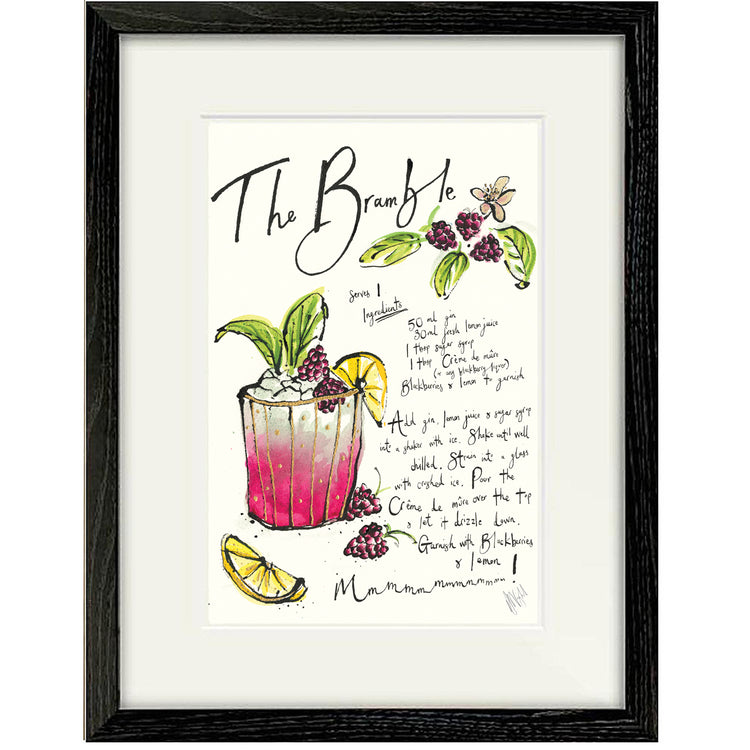 The Bramble
Serves 1
Ingredients
50 ml gin
30ml fresh lemon juice
1 tbsp sugar syrup
1 tbsp Crème de mûre
(or any blackberry liqueur)
Blackberries & lemon to garnish
Add gin, lemon juice & sugar syrup
into a shaker with ice. Shake until well
chilled. Strain into a glass
with crushed ice. Pour the
Crème de mûre over the top
& let it drizzle down.
Garnish with Blackberries
& lemon
Mmmmmmmmmm!